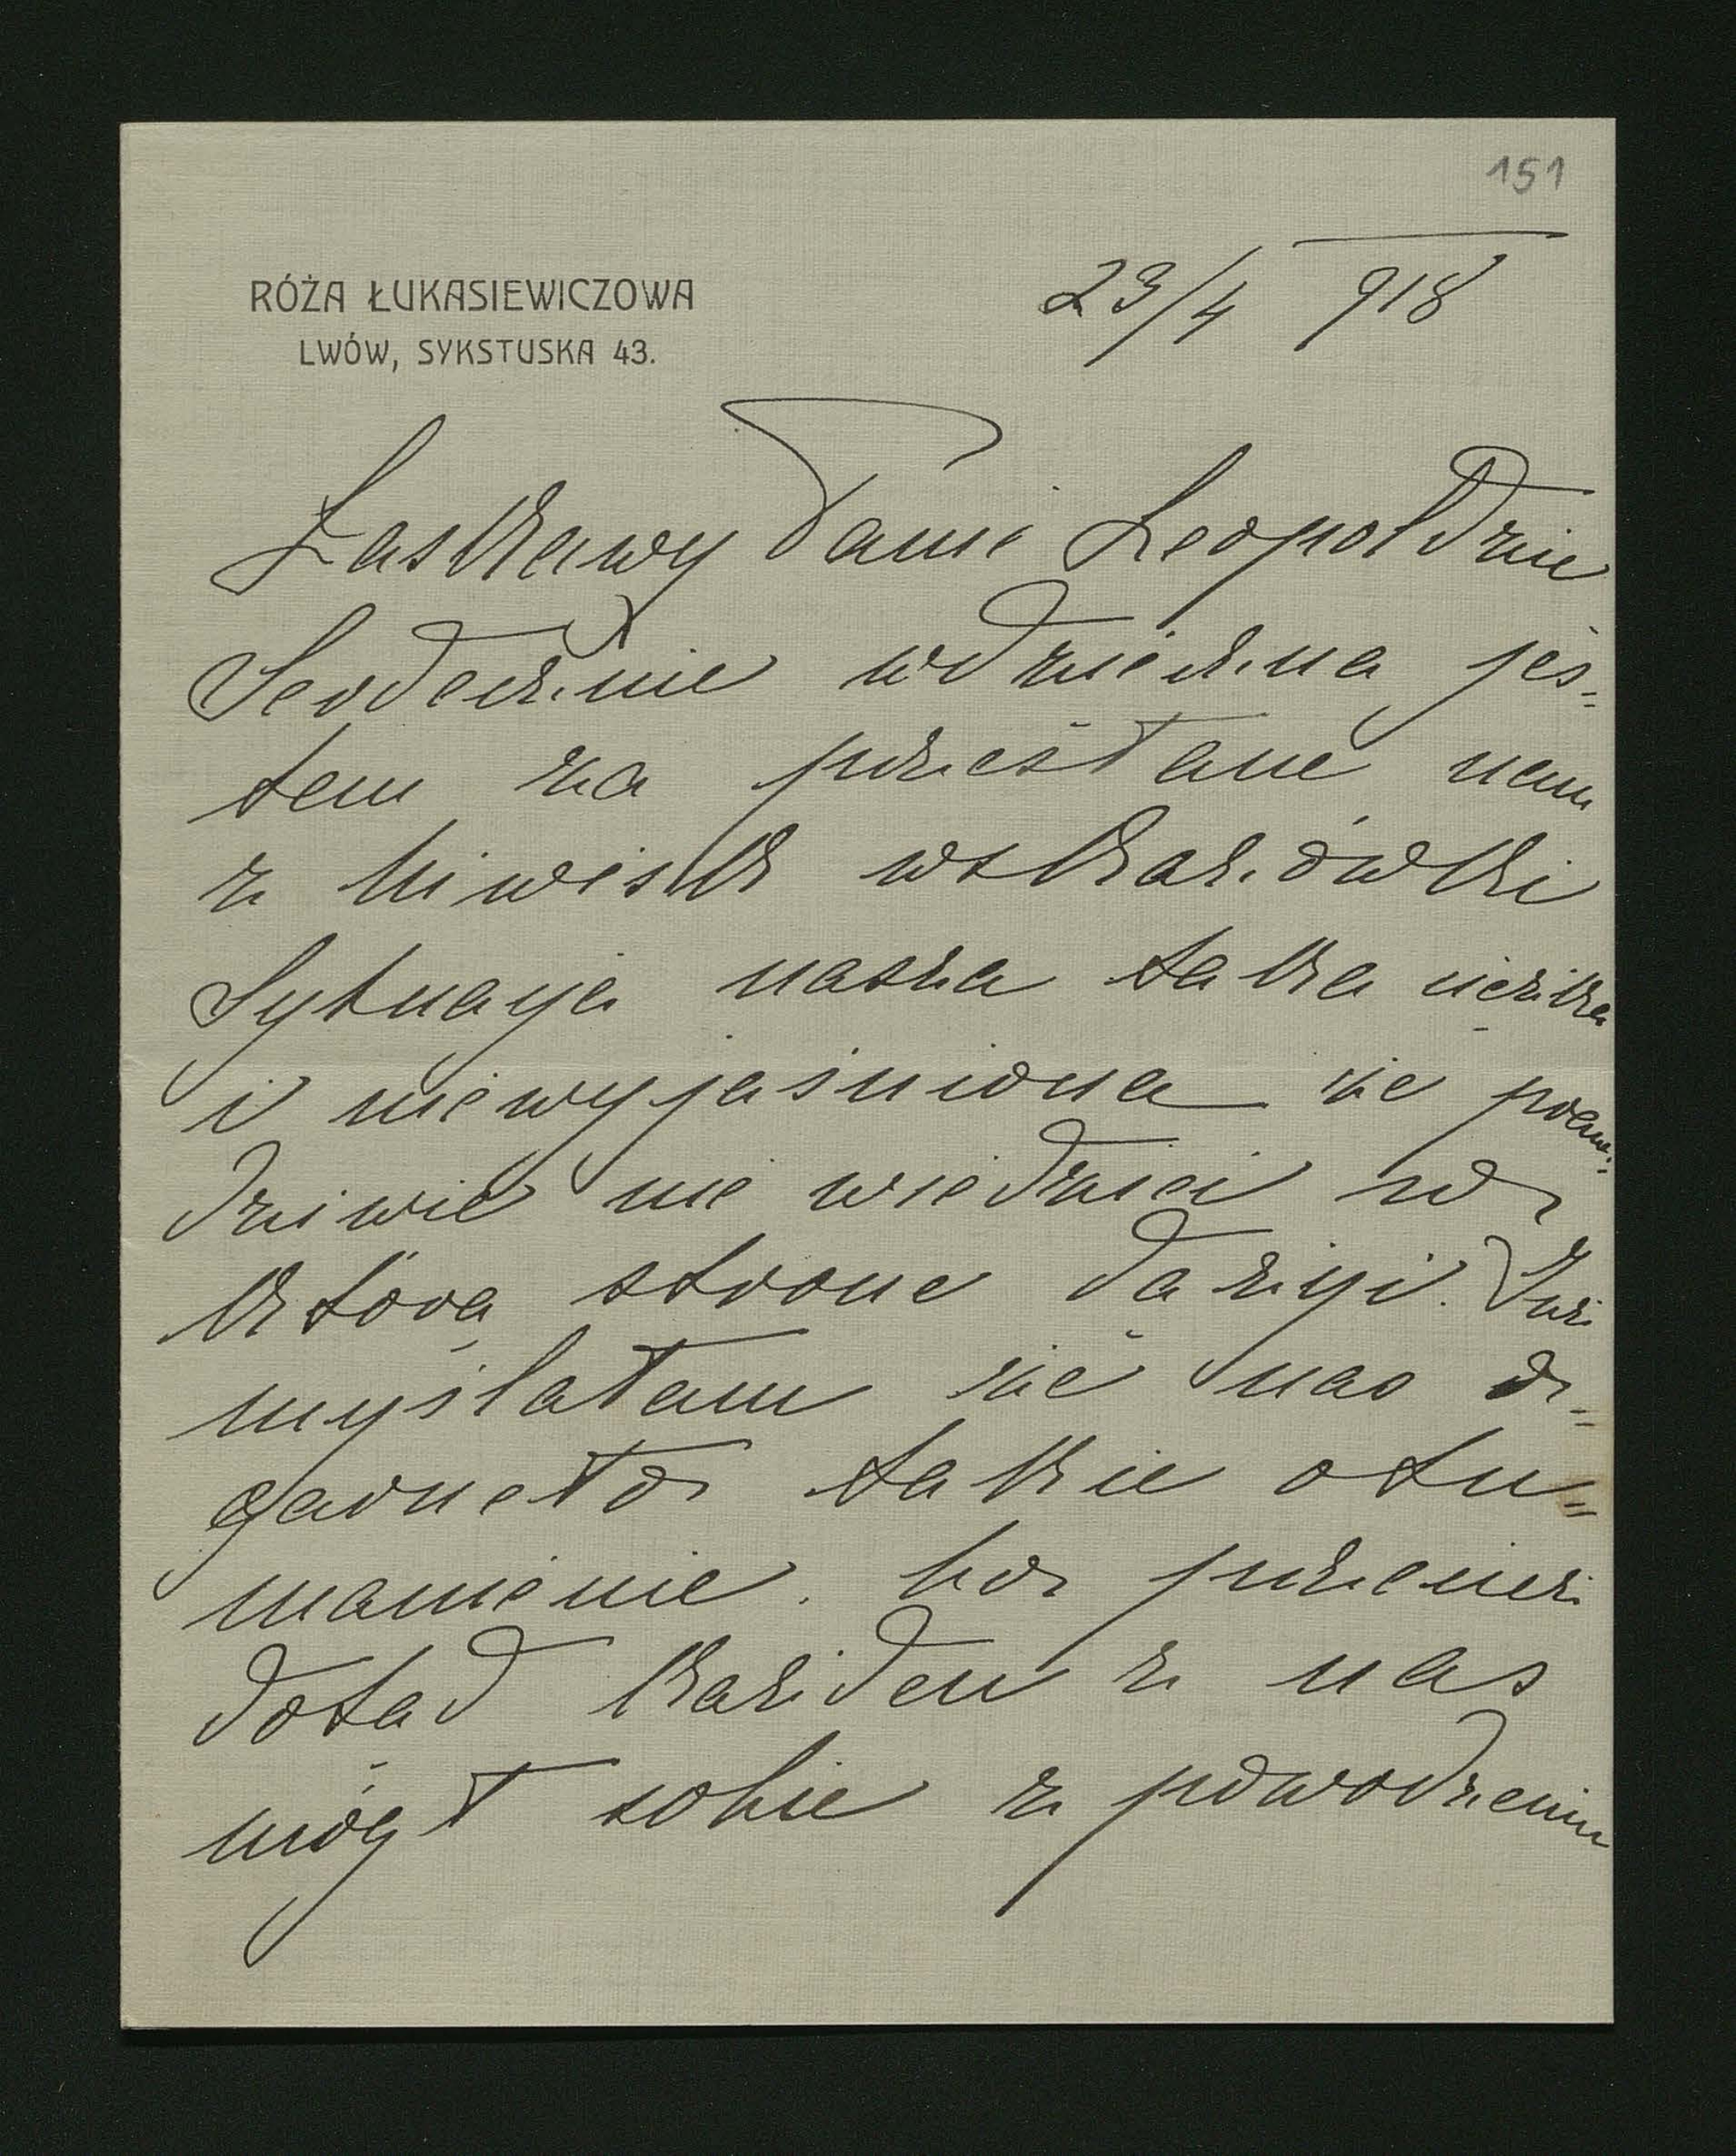 151
RÓŻA ŁUKASIEWICZOWA
LWÓW, SYKSTUSKA 43.
23/4 918
Łaskawy Panie Leopoldzie
Serdecznie wdzięczna jes=
tem za przesłane nam
z Niwisk wskazówki
Sytuacya nasza taka ciężka
i niewyjaśniona że praw=
dziwie nie wiedzieć w
którą stronę dążyć. Już
myślałam że nas o=
garnęło takie otu=
manienie. bo przecież
dotąd każden z nas
mógł sobie z powodzeniem